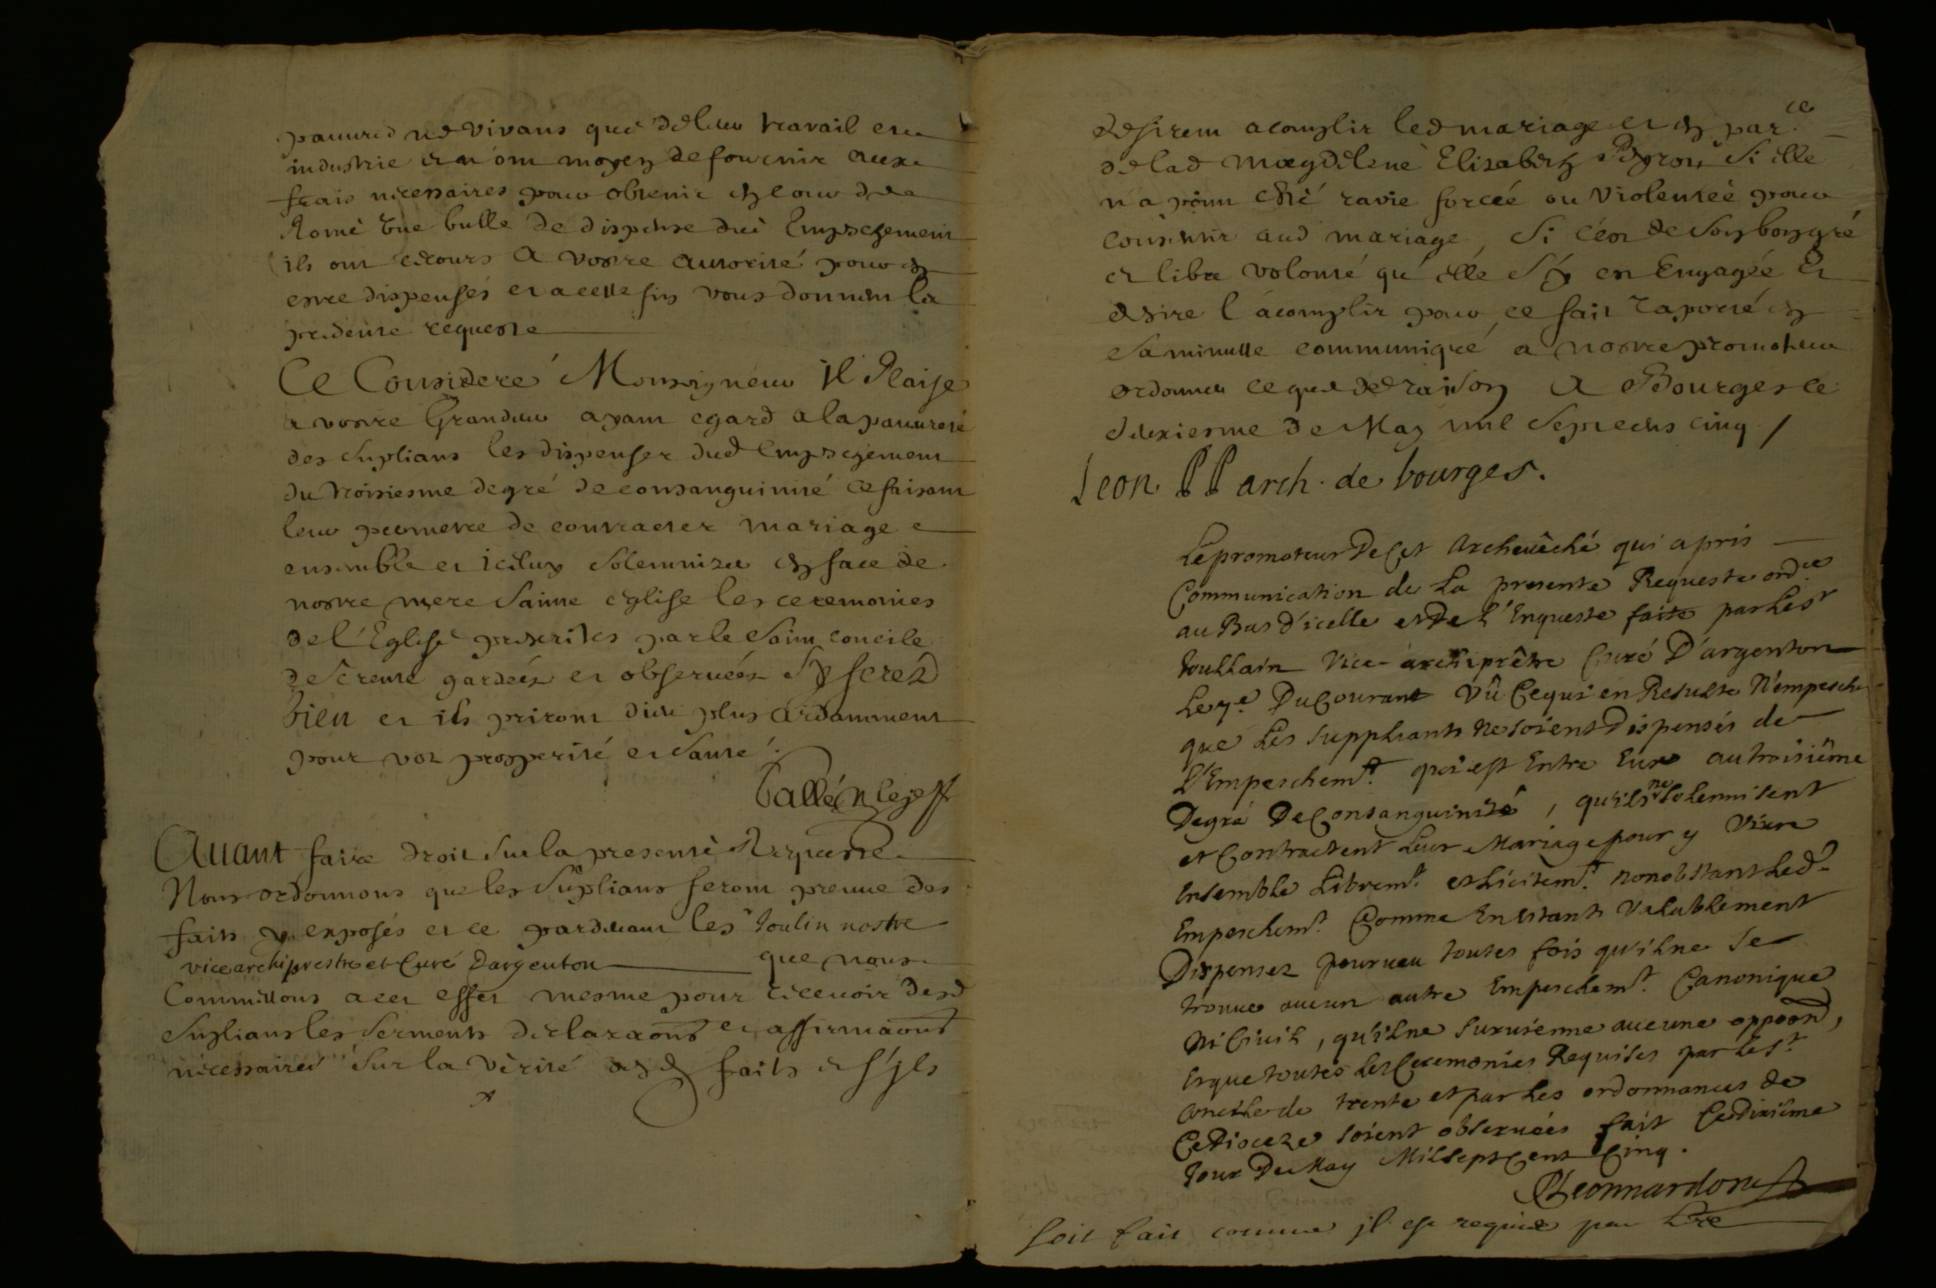 pauures ne vivans que de leur travail et
industrie et n'ont moyen de fournir aux
frais necessaires pour obtenir en cour de
Rome une bulle de dispense dud Empeschement
ils ont recours a vostre autorité pour en
estre dispensés et a cette fin vous donnent la
presente requeste
Ce Consideré Monseigneur Il Plaise
a vostre Grandeur ayant egard a la pauureté
des suplians les dispenser dud Empeschement
du troisiesme degré de consanguinité ce faisant
leur permetre de contracter mariage
ensemble et icelluy solemnizer en face de
nostre mere Sainte eglise les ceremonies
de l'Eglise prescrites par le Saint concile
de trente gardeés et observueés Sy ferez
bien et ils priront dieu plus ardamment
pour vos prosperité et santé
Auant faire droit sur la presente Requeste
Nous ordonnons que les suplians feront preuue des
faits y exposés et ce pardeuant le sr Toulin nostre
vicearchiprestre et Curé dargenton que nous
Commettons a cet effet mesme pour receuoir desd
suplians les serments declaraons et affirmaons
necessaires sur la verité desd faits et s'jls
desirent acomplir led mariage et en par.ce
de lad Magdelene Elisabeth Peyron Si elle
n'a point esté ravie forcée ou violenteé pour
consentir aud mariage, Si c'est de son bon gré
et libre volonté qu'elle s'y en Engagée et
desire l'acomplir pour, ce fait raporté en
sa minutte communiqué a nostre promoteur
ordonner ce que de raison A Bourges ce
deuxiesme de May mil sept cens cinq /
Leon PP arch. de bourges.
Le promoteur De Cet Archeuêché qui a pris
Communication de La presente Requeste ord.ce
au Bas d'icelle et De L'Enqueste faite par Le sr
toullain Vice-archiprêtre Curé D'argenton
Le 7.e Du Courant Vû Ce qui en Resulte N'empesche
que Les suppliants Ne soient Dispensés de
L'Empeschem.t qui est Entre Eux au troisiême
Degré De Consanguinité, qu'ils ne solennisent
et Contractent Leur Mariage pour y Viure
Ensemble Librem.t et Licitem.t nonobstant Led.
Empeschem.t Comme En Estants Valablement
Dispensez pourueu toutes fois qu'il ne se
trouue aucun autre Empeschem.t Canonique
Ni Ciuil, qu'il ne suruienne aucune oppoon,
Et que toutes Les Ceremonies Requises par Le st
Concile de trente et par Les ordonnances de
Ce Dioceze soient obseruées fait Ce Dixiême
Jour De May Mil sept Cent Cinq.
Leonnardon
soit fait comme jl est requis par